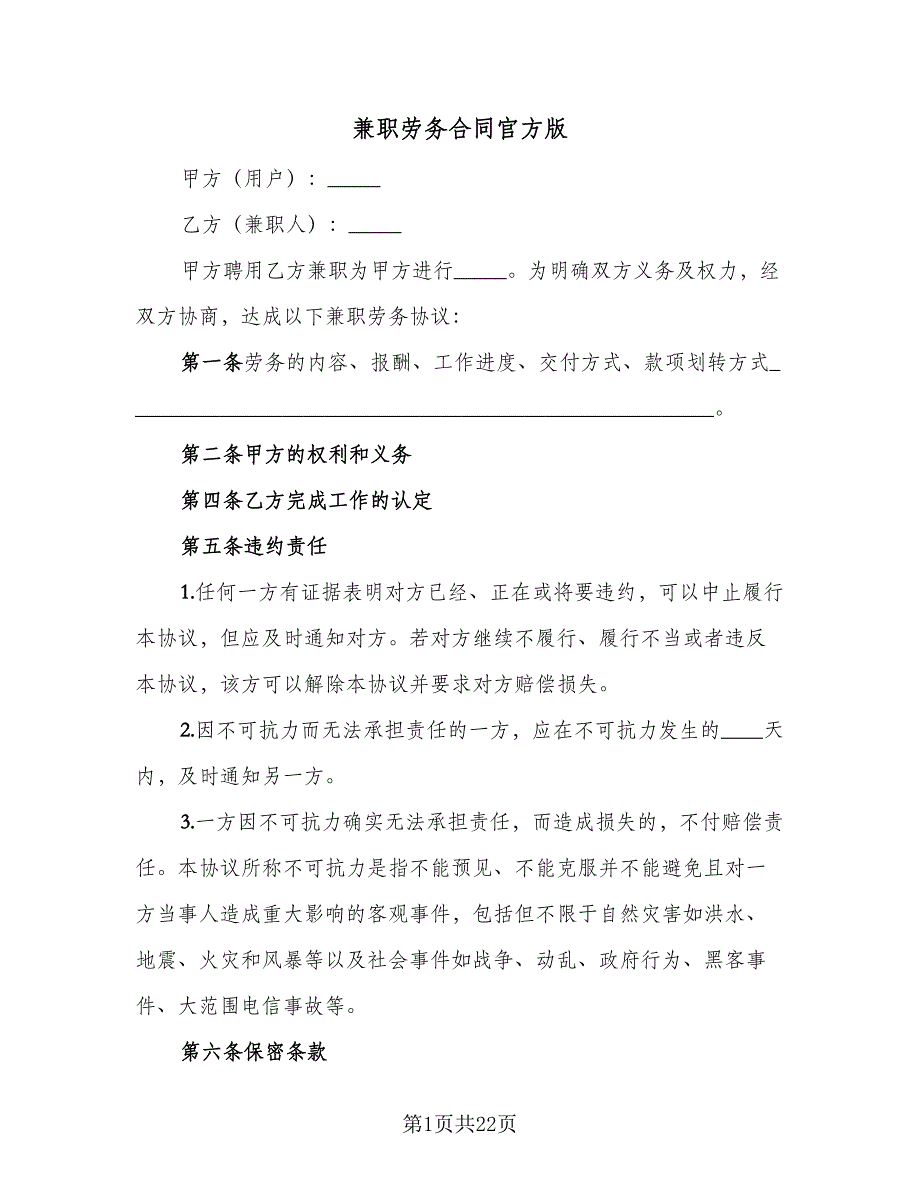 兼职劳务合同官方版
甲方（用户）：_____
乙方（兼职人）：_____
甲方聘用乙方兼职为甲方进行_____。为明确双方义务及权力，经
双方协商，达成以下兼职劳务协议：
第一条劳务的内容、报酬、工作进度、交付方式、款项划转方式_
_______________________________________________________。
第二条甲方的权利和义务
第四条乙方完成工作的认定
第五条违约责任
1.任何一方有证据表明对方已经、正在或将要违约，可以中止履行
本协议，但应及时通知对方。若对方继续不履行、履行不当或者违反
本协议，该方可以解除本协议并要求对方赔偿损失。
2.因不可抗力而无法承担责任的一方，应在不可抗力发生的____天
内，及时通知另一方。
3.一方因不可抗力确实无法承担责任，而造成损失的，不付赔偿责
任。本协议所称不可抗力是指不能预见、不能克服并不能避免且对一
方当事人造成重大影响的客观事件，包括但不限于自然灾害如洪水、
地震、火灾和风暴等以及社会事件如战争、动乱、政府行为、黑客事
件、大范围电信事故等。
第六条保密条款
第1页共22页